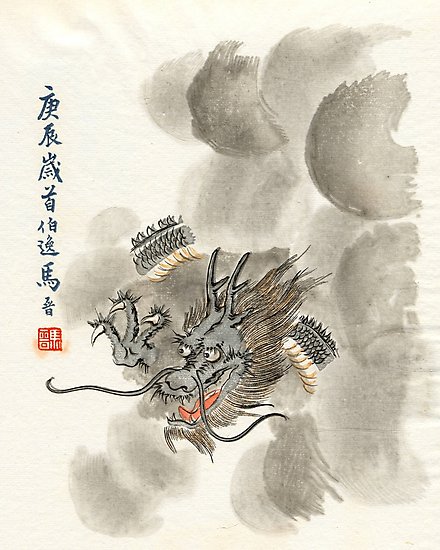 庚辰歲首伯逸馬晉
馬晉